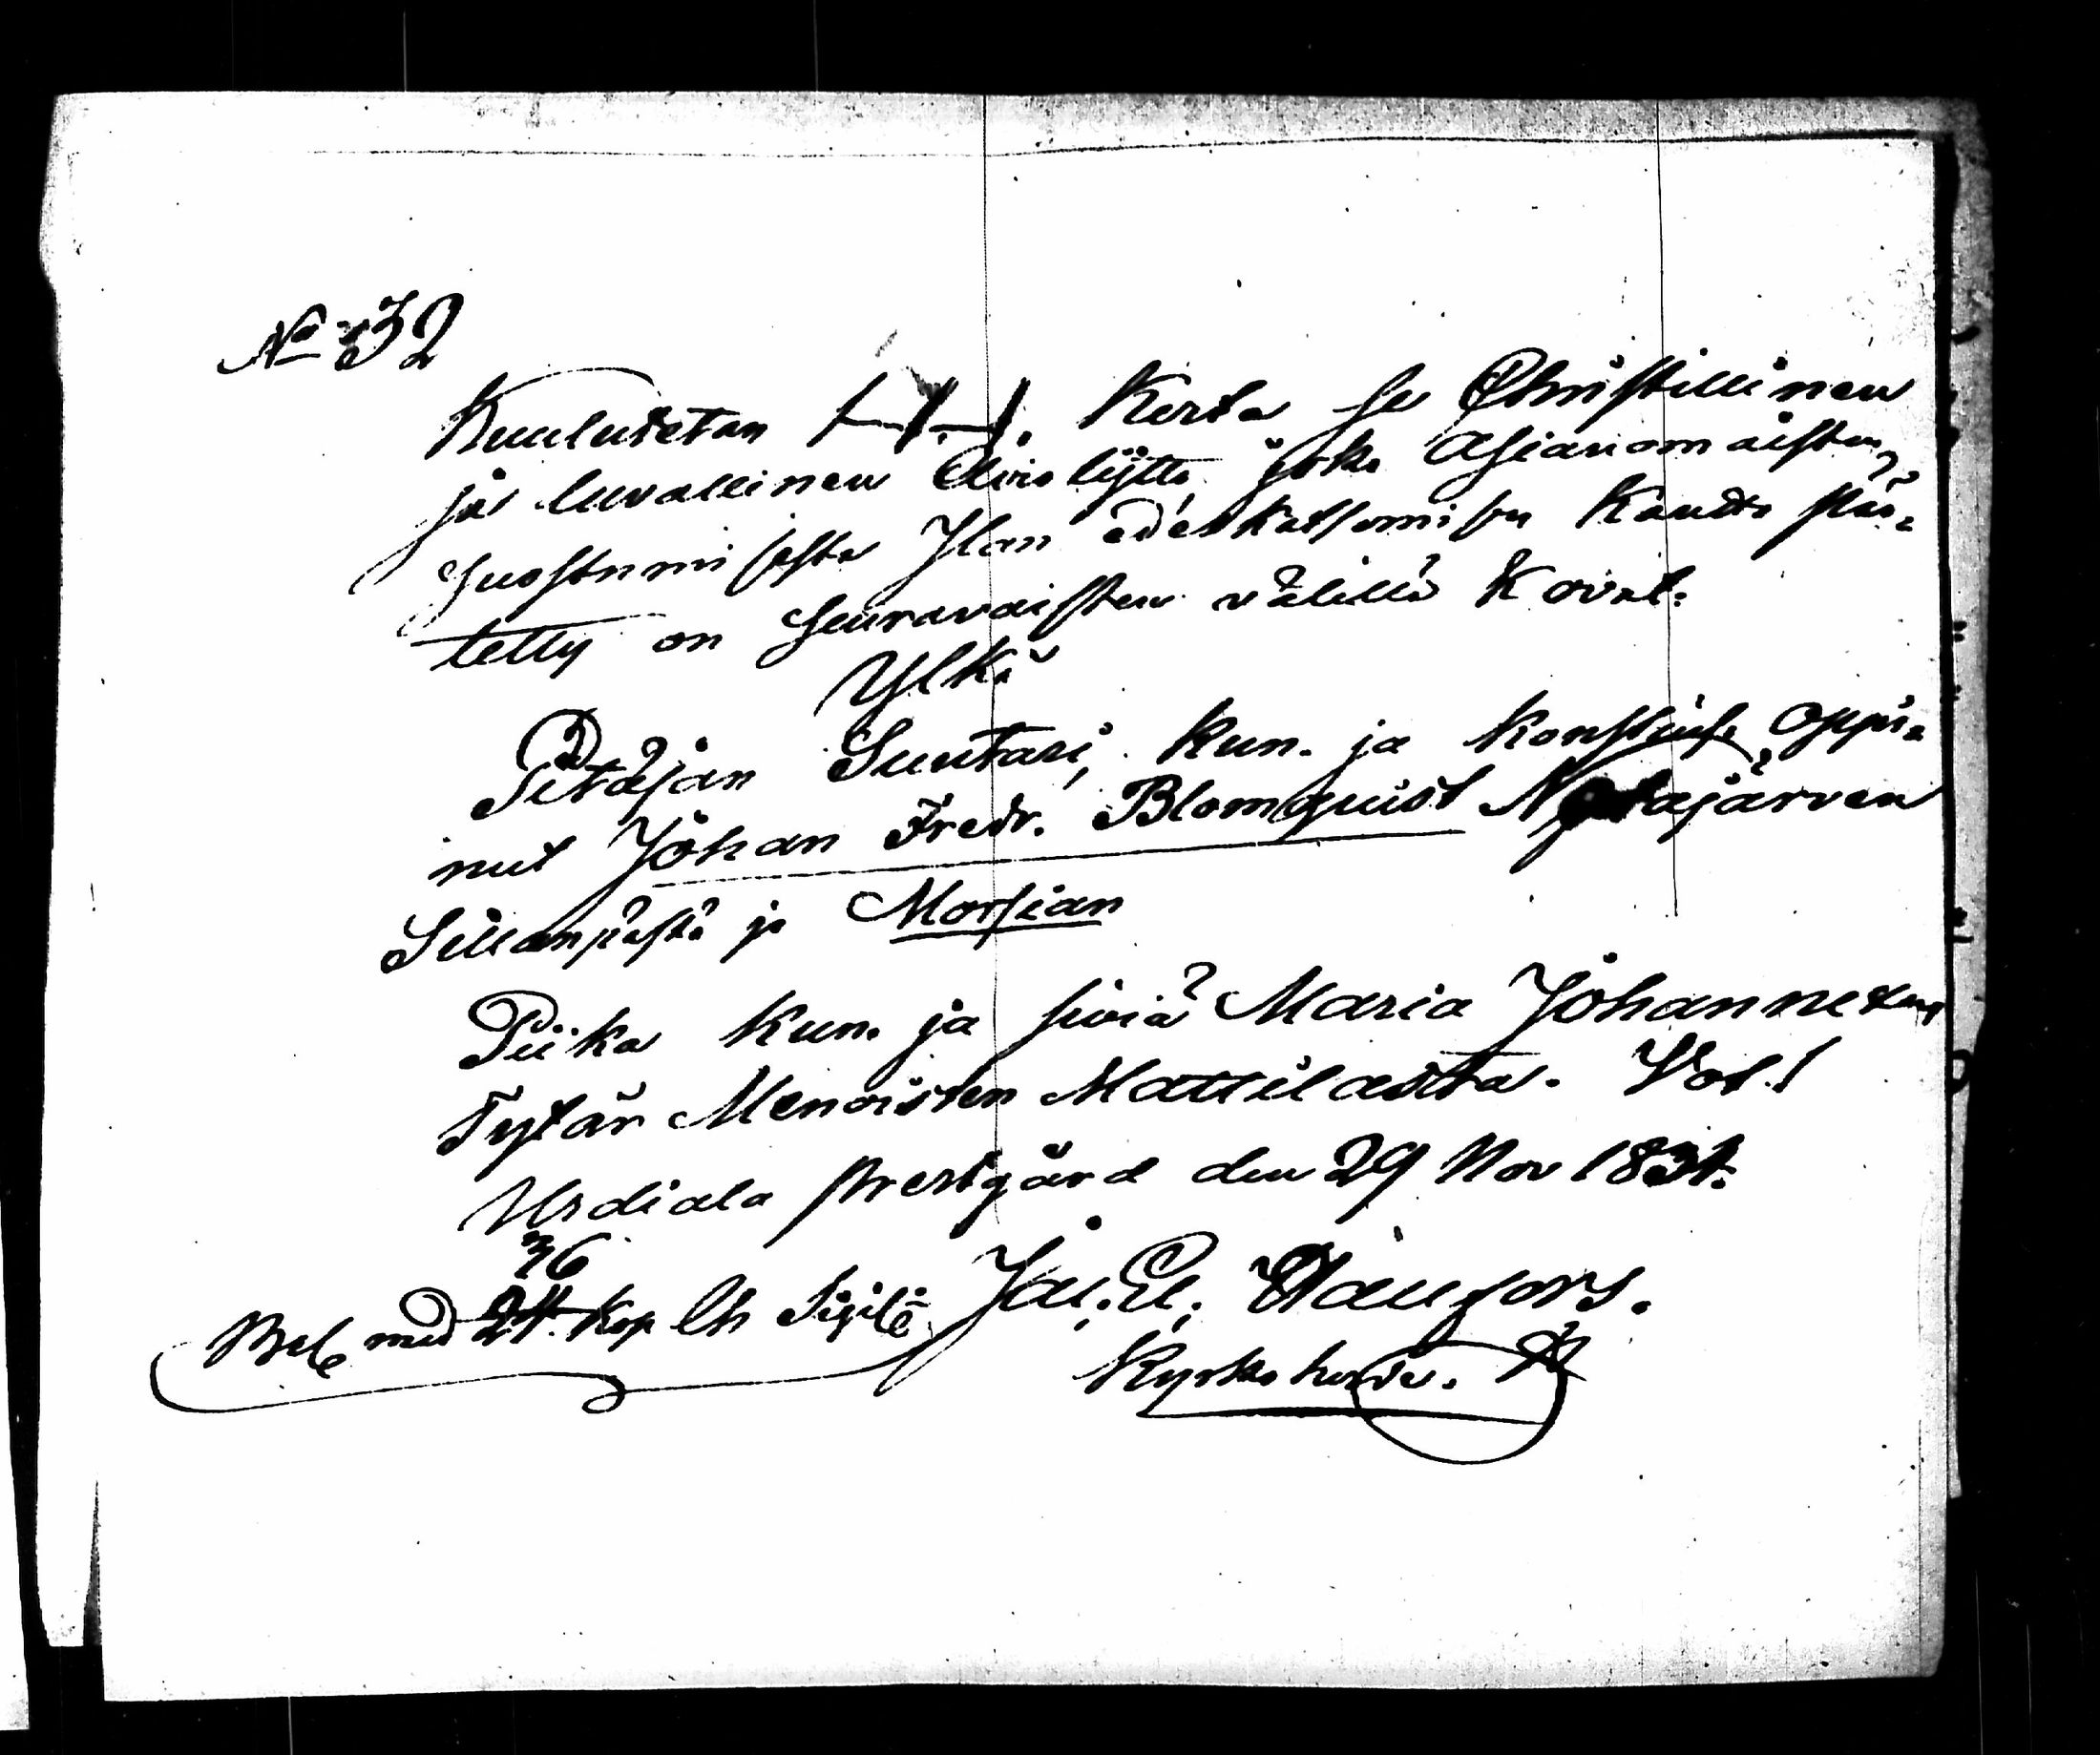 No 32
Kuulutetan 1. Kerta se Christillinen
ja luvallinen Avio lijtto joka Asianomaisten
suostumisesta Ilan edeskatsomisen kautta pää=
tetty on seuravaisten välillä Koval.
Ylkä
Pitäjän Suutari, kun. ja konstiist oppi=
nut Johan Fredr. Blomquist Nutajärven
Sillanpästä ja Morsian
Piika kun. ja siviä Maria Johannexen
Tytär Menoisten Mattilasta. Vot!
Urdiala prestgård den 29 Nov 1831.
36
med 24 Kop Ch Sigil. Jac. El.
Kyrkoherde.